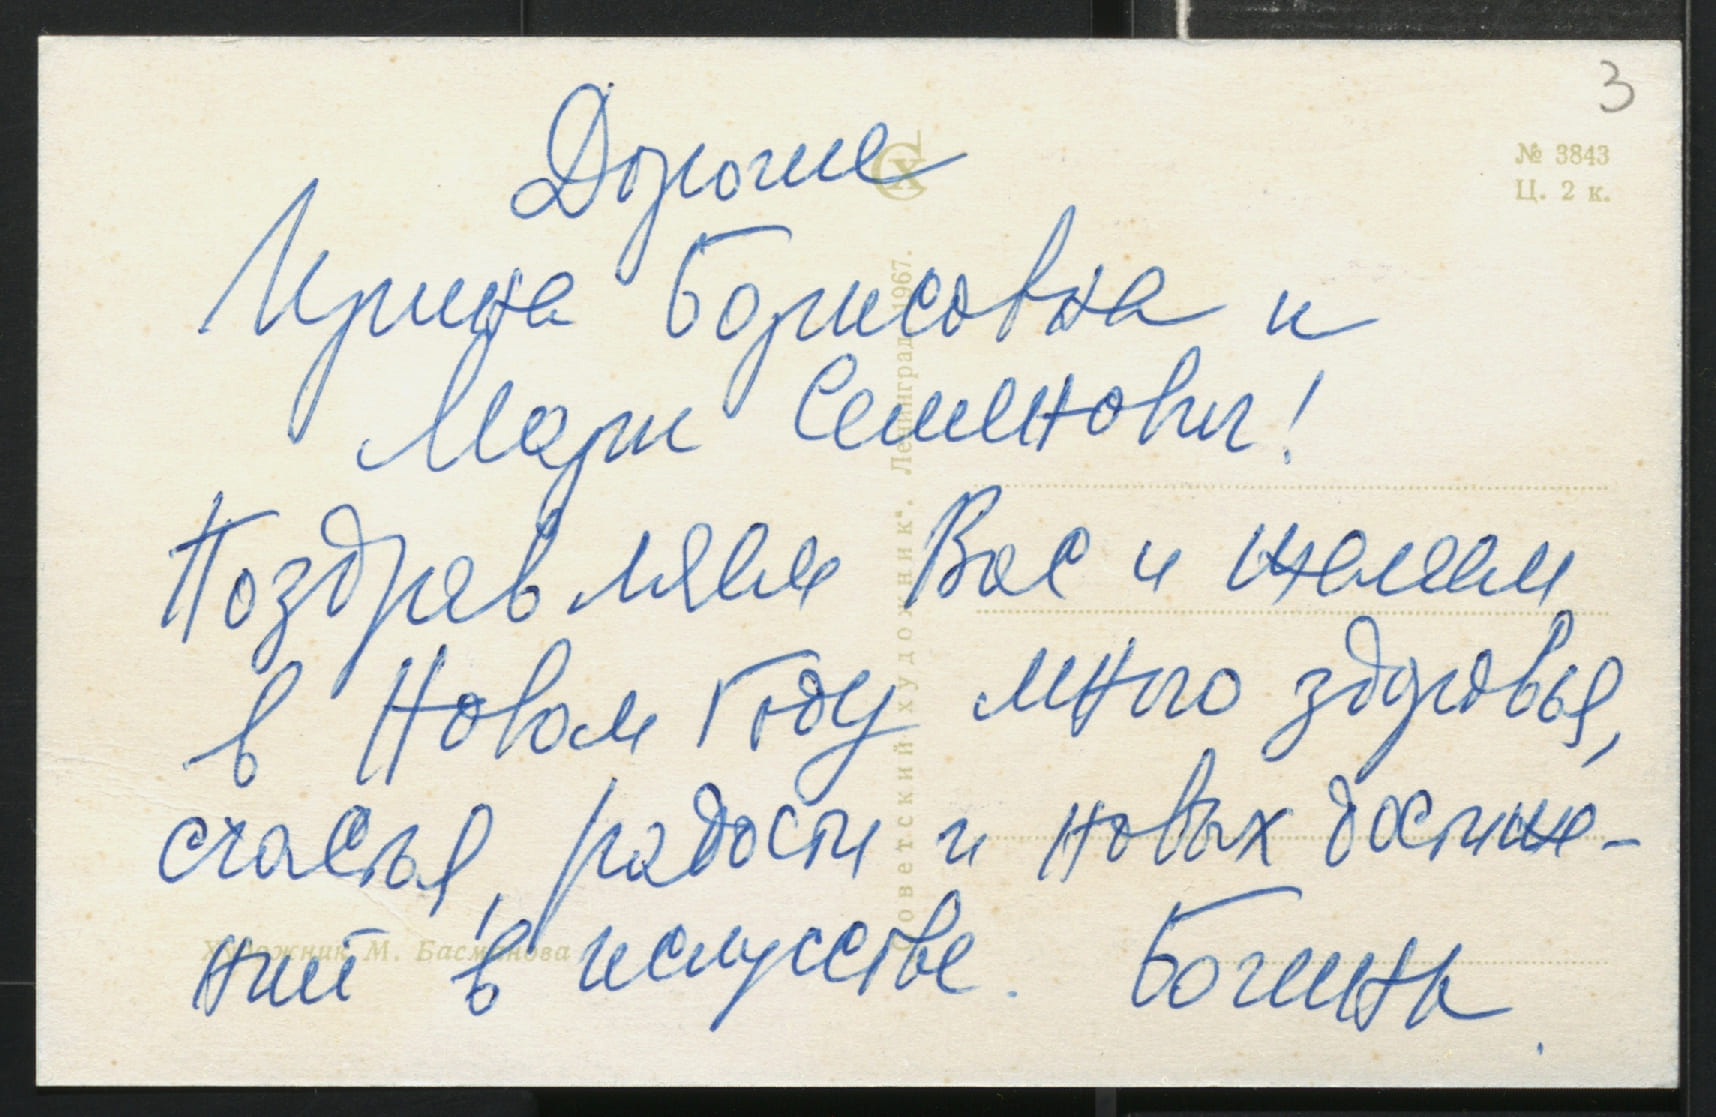 3
№ 3843
Ц. 2 к.
Дорогие
Ирина Борисовна и
Марк Семенович!
Поздравляем Вас и желаем
в Новом Году много здоровья,
счастья, радости и новых достиже-
ний в искусстве. Богины
Художник М. Басманова
Советский художник". Ленинград. 1967.